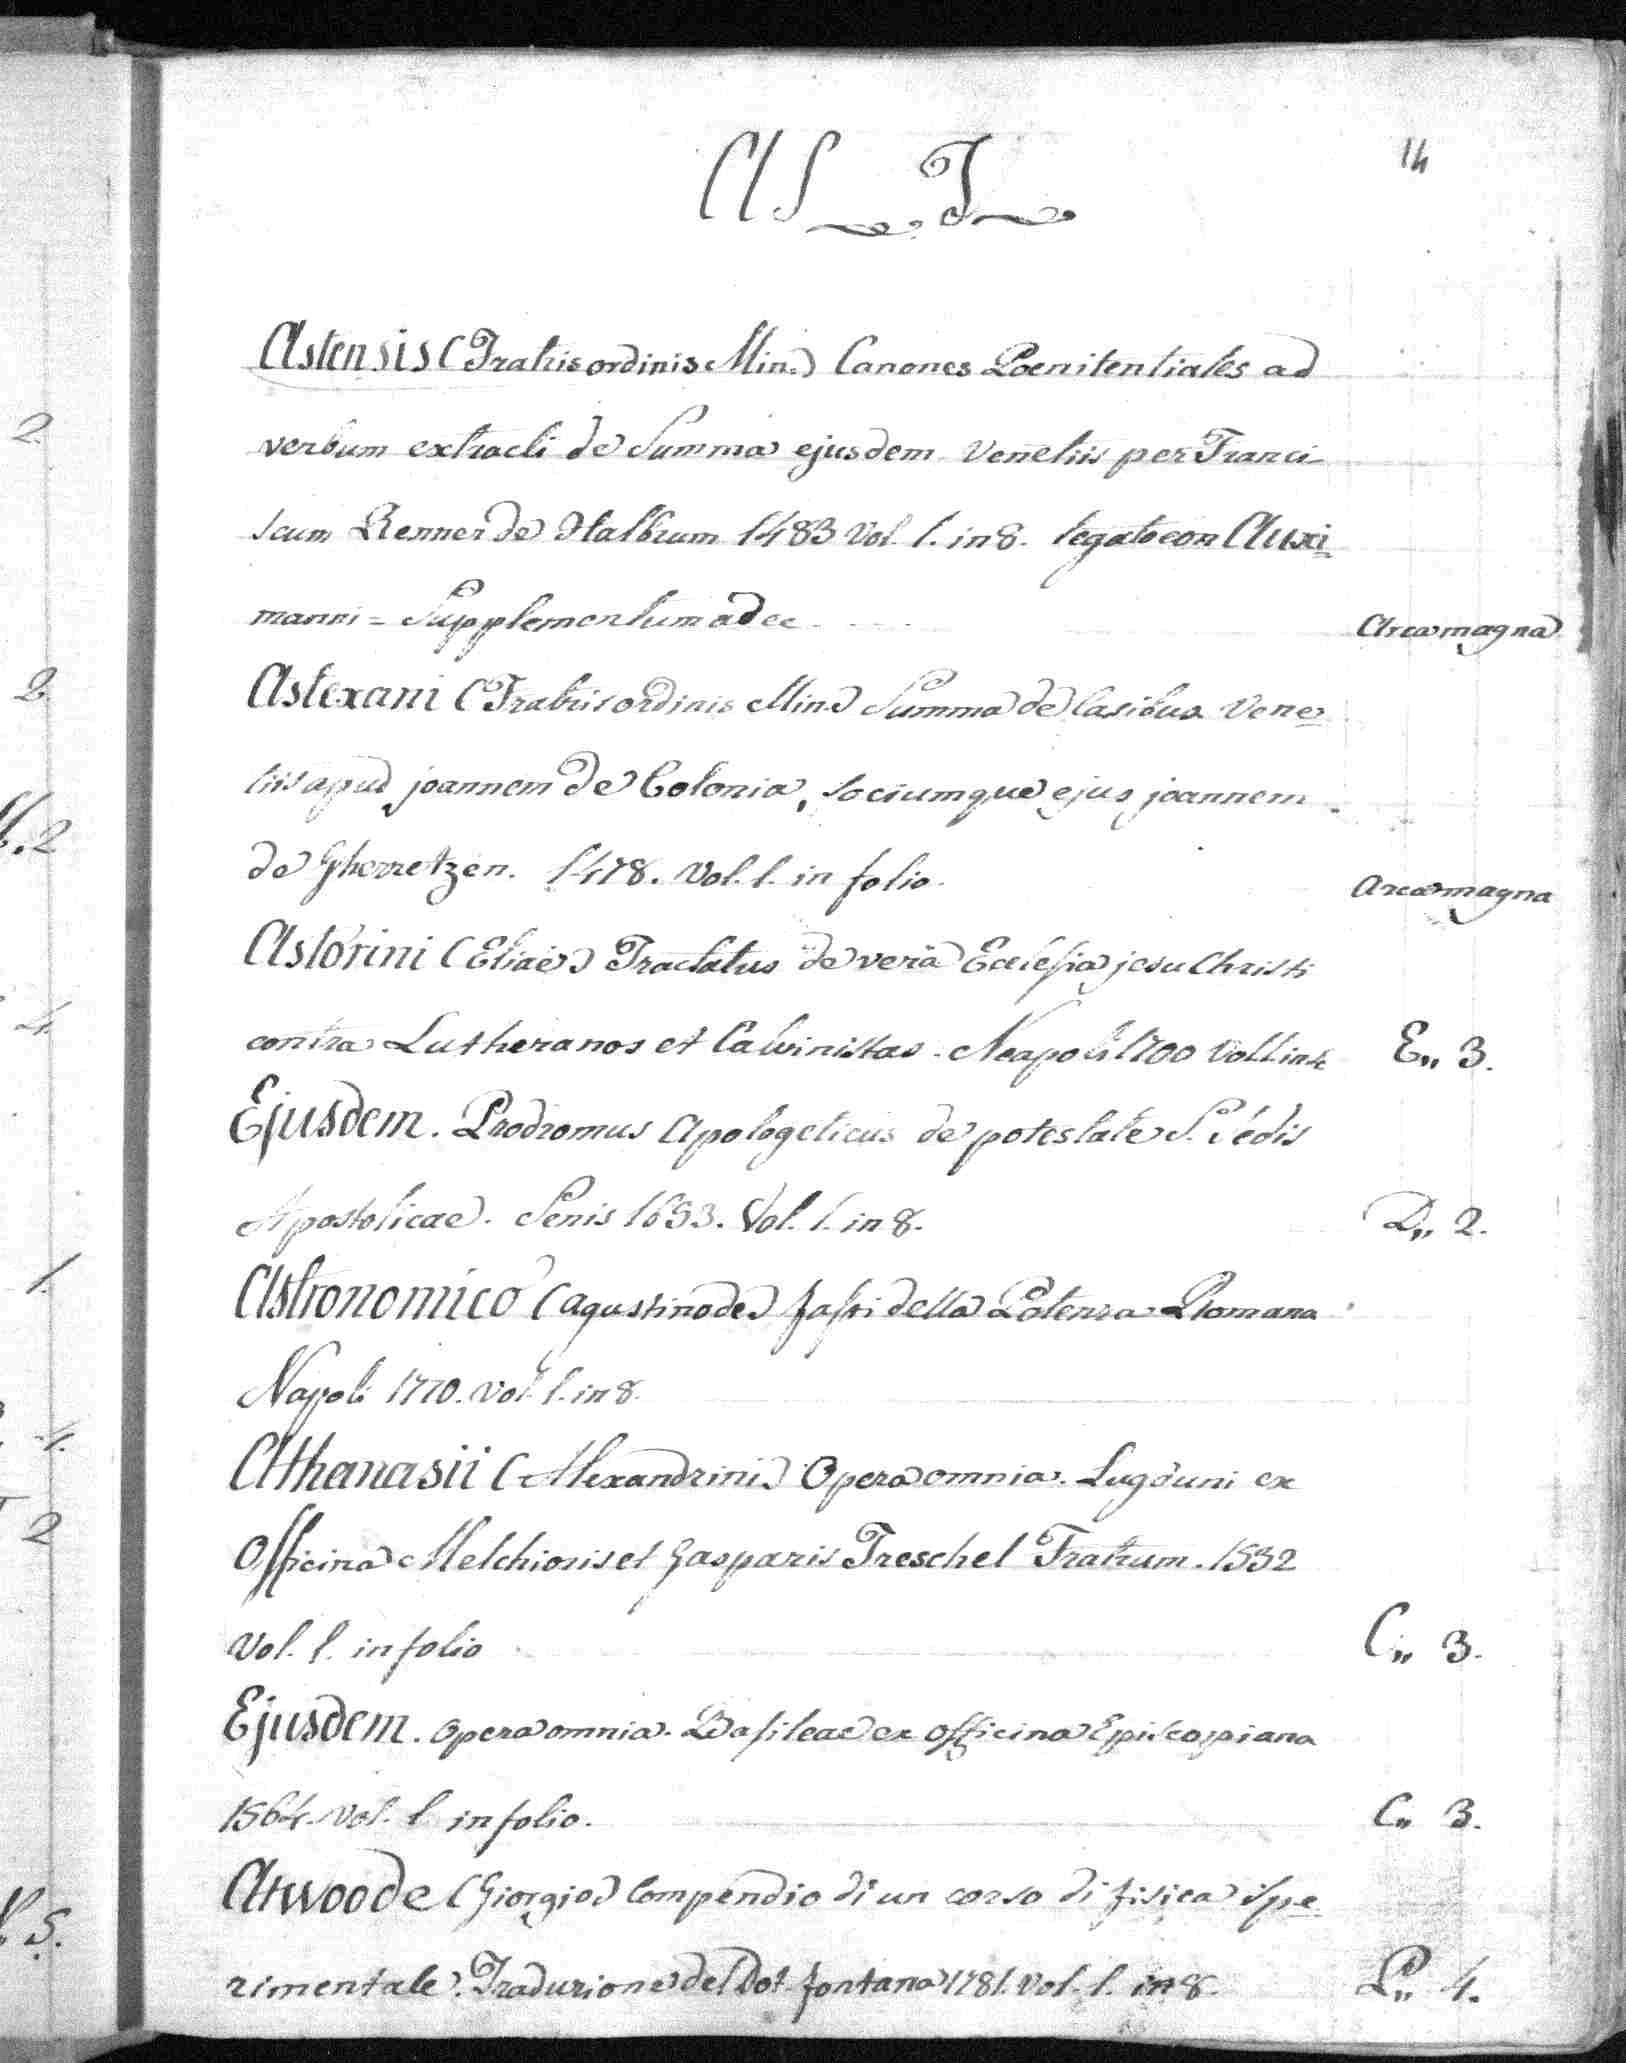 AS T
14
Astensis (Fratris ordinis Min.) Canones Poenitentiales ad
verbum extracti de Summa ejusdem Venetiis per Franci-
scum Renner de Halbrum 1483 Vol. 1. in 8. legato con Auxi=
manni = Supplementum ad ec Arca magna
Astexani (Fratris ordinis Min.) Summa de Casibus Vene=
tiis apud joannem de Colonia, sociumque ejus joannem
de Gherretzen. 1478. Vol. 1. in folio. Arca magna
Astorini (Eliae) Tractatus de vera Ecclesia jesu Christi
contra Lutheranos et Calvinistas. Neapoli 1700 Vol 1. in 4 E,, 3.
Ejusdem. Prodromus Apologeticus de potestate S. Sedis
Apostolicae. Senis 1693. Vol. 1. in 8. D,, 2.
Astronomico (Agustino de) fasti della Potenza Romana
Napoli 1770. Vol. 1. in 8.
Athanasii (Alexandrini) Opera omnia. Lugduni ex
Officina Melchioris et Gasparis Treschel Fratrum. 1532
Vol. 1. in folio C,, 3.
Ejusdem. Opera omnia. Basileae ex Officina Episcopiana
1564. Vol. 1 in folio. C,, 3.
Atwoode (Giorgio) Compendio di un corso di fisica spe=
rimentale. Traduzione del Dot. fontana 1781. Vol. 1. in 8. P,, 4.